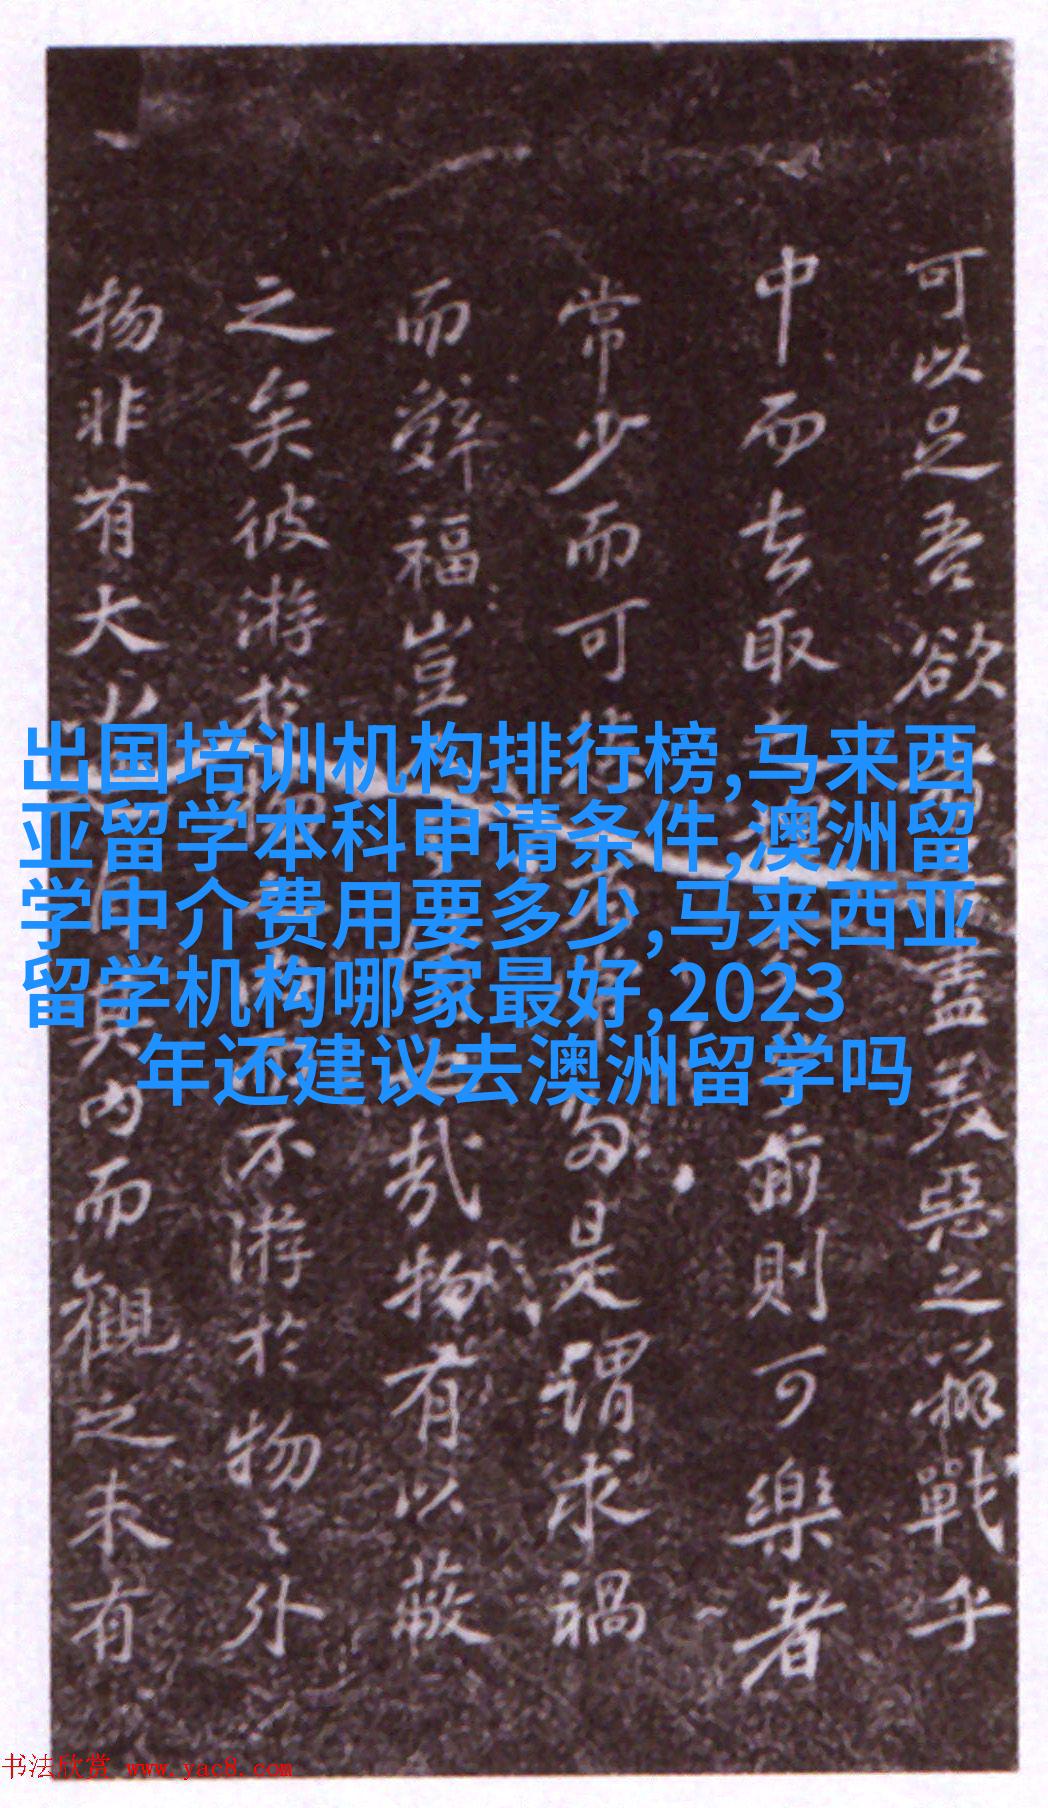 可以足吾欲盡美惡之辨戰乎
中而去取前則可樂者
常少而可是謂求禍
而辭福豈哉物有以蔽
之矣彼游於不游於物之外
物非有大小其內而觀之未有
出国培训机构排行榜,马来西
亚留学本科申请条件,澳洲留
学中介费用要多少,马来西亚
留学机构哪家最好,2023
年还建议去澳洲留学吗
书法欣赏 www.yac8.com